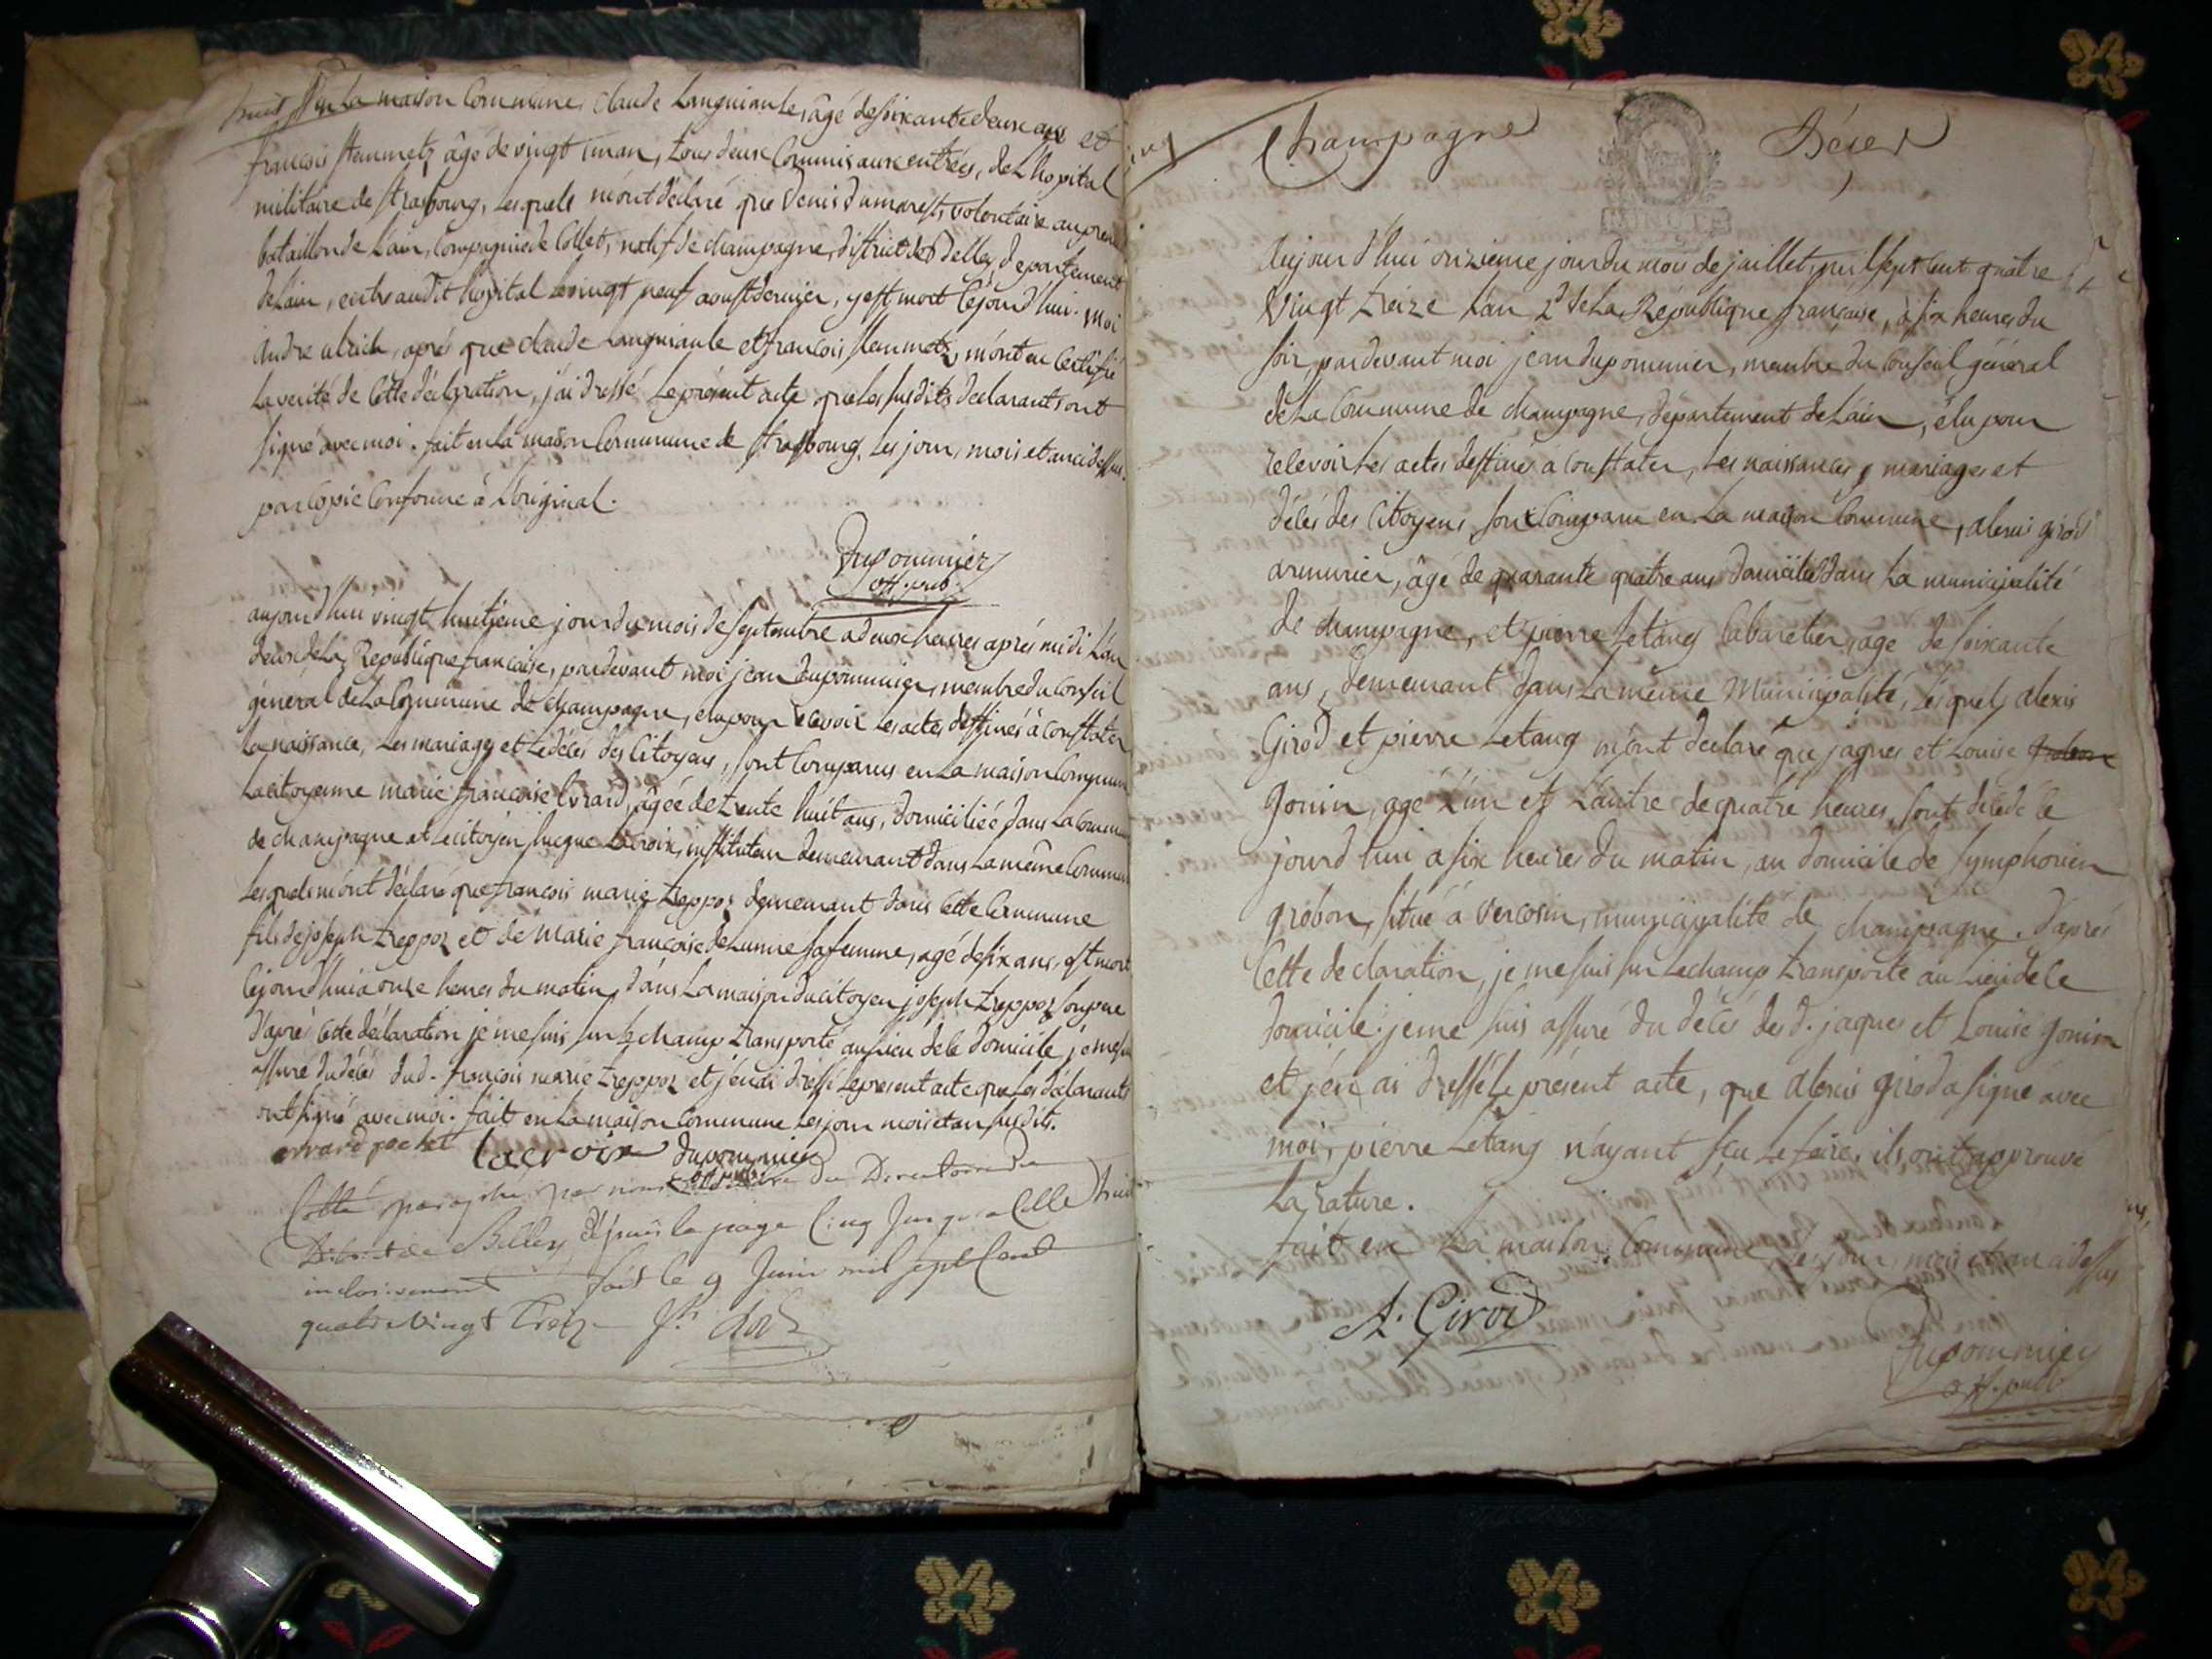 huit
En la maison Commune, Claude Languiaule, âgé de soixante deux ans et
françois stenmetz âgé de vingt un an, tous deux Commis aux entrées, de L'hopital
militaire de strasbourg, Lesquels m'ont déclaré que Denis Dumarest, volontaire au premier
bataillon de L'ain, Compagnie de Collet, natif de champagne, district de Belley, departement
de Lain, entré audit hopital le vingt neuf aoust dernier, y est mort Cejourd'hui. moi
andre ulrich, après que claude Languiaule et françois stenmetz, m'ont eu Certifié
La verité de Cette déclaration, j'ai dressé Le présent acte que Les susdits déclarants ont
signé avec moi. fait en La maison Commune de strasbourg, Les jour, mois et an ci dessus.
par Copie Conforme à L'original.
Dupommier
off. pub.
aujourd'hui vingt huitieme jour du mois de septembre a deux heures après midi L'an
deux de La Republique francaise, pardevant moi jean dupommier, membre du Conseil
général de La Commune de champagne, élu pour recevoir Les actes destinés à constater
La naissance, Les mariages et Le décés des Citoyens, sont Comparus en La maison Commune
La citoyenne marie françoise Evrard, âgée de trente huit ans, domiciliée dans La Commune
de champagne et Le citoyen hugue Lacroix, instituteur demeurant dans La même Commune
Lesquels m'ont déclaré que françois marie treppoz demeurant dans Cette Commune
fils de joseph treppoz et de marie françoise sa femme, agé de six ans, est mort
Cejourd'hui a onze heures du matin, dans La maison du citoyen joseph treppoz son pere
d'après Cette déclaration je me suis sur Le champ transporté au Lieu de Ce domicile je me suis
assuré du décés dud. françois marie treppoz et j'en ai dressé Le present acte que Les déclarants
ont signé avec moi. fait en La maison Commune Les jour mois et an susdits.
evrard pochet Lacroix dupommier
Cotté paraphé par nous du Directoire du
District de Belley dépuis la page Cinq Jusqu'a Celle huit
inclusivement fait le 9 Juin mil sept Cent
quatre Vingt Treize
Champagne Décès
Aujourd'hui onzieme jour du mois de juillet, mil sept cent quatre
Vingt treize L'an 2d de La Republique française, à six heures du
soir, pardevant moi jean dupommier, membre du Conseil général
de La Commune de champagne, département de Lain, élu pour
recevoir Les actes destinés à constater, Les naissances, mariages et
décés des Citoyens, sont Comparu en La maison Commune, alexis girod
armurier, âgé de quarante quatre ans domicilié dans La municipalité
de champagne, et pierre Letang Cabaretier, âgé de soixante
ans, demeurant dans La même Municipalité, Lesquels alexis
Girod et pierre Letang m'ont declaré que jaques et Louise
Gonin, agé L'un et L'autre de quatre heures, sont décédé Ce
jourd'hui a six heures du matin, au domicile de symphorien
grobon, situé à vercosin, municipalité de champagne. d'après
Cette declaration, je me suis sur Le champ transporté au Lieu de Ce
domicile. je me suis assuré du décés des d. jaques et Louise gonin
et j'en ai dressé Le présent acte, que alexis girod a signé avec
moi, pierre Letang n'ayant sçu Le faire, ils ont approuvé
La rature.
fait en La maison Commune, Les jour, mois et an ci dessus
A. Girod
Dupommier
off. pub.